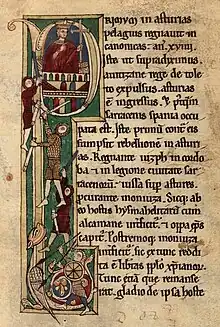 PRIMUM in asturias
pelagius regnauit in
canonicas. an. xviiii.
Iste ut supradiximus
uuitizane rege de tole
to expulsus. asturias
e ingressus. et postqua
sarracenis spania occu
pata est. iste primu cont eis
sumpsit rebelione in asturi
as. Regnante iuzeph in cordo
ba et in legione ciuitate sar
racenoru iussa sup astures
pcurante monuza. Sicq; ab
eo hostis ysmahelitaru cum
alcamane intficit. et oppa eps
capit. Postremoq; monuza
intficit. sic ex tunc reddi
ta e libertas pplo xpianor.
Tunc etia que remanse
rant. gladio de ipsa hoste